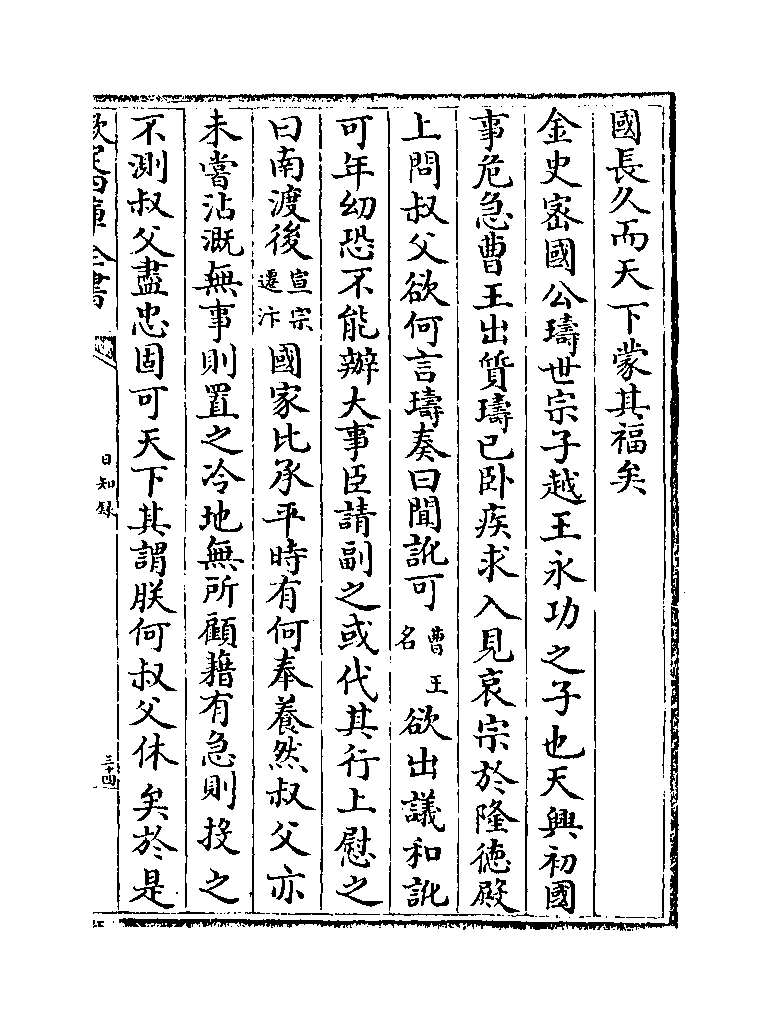 國長久而天下蒙其福矣
金史密國公璹世宗子越王永功之子也天興初國
事危急曹王出質璹已卧疾求入見哀宗於隆徳殿
上問叔父欲何言璹奏曰聞訛可曹王名欲出議和訛
可年幼恐不能辦大事臣請副之或代其行上慰之
曰南渡後宣宗遷汴國家比承平時有何奉養然叔父亦
未嘗沾溉無事則置之冷地無所顧藉有急則投之
不測叔父盡忠固可天下其謂朕何叔父休矣於是
欽定四庫全書
日知錄
三十四